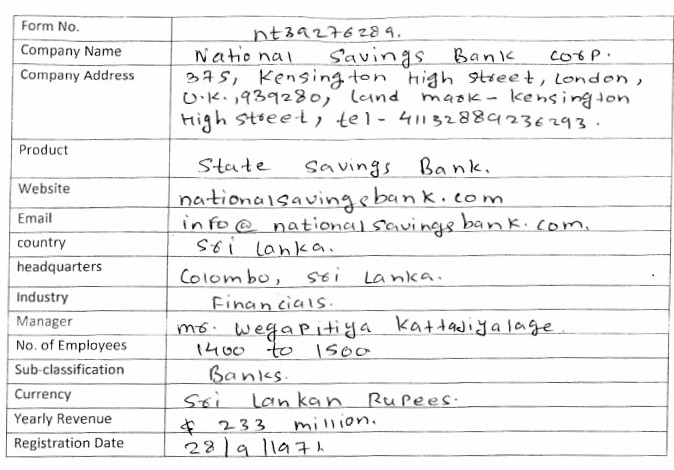 Form No. nt39276289.
Company Name National Savings Bank corp.
Company Address 375, Kensington High street, London,
U.K., 939280, Land mark - Kensington
High street, tel - 41132889236293.
Product State Savings Bank.
Website nationalsavingsbank.com
Email info@nationalsavingsbank.com.
country Sri Lanka.
headquarters Colombo, Sri Lanka.
Industry Financials.
Manager mr. Wegapitiya Kattadiyalage
No. of Employees 1400 to 1500
Sub-classification Banks.
Currency Sri Lankan Rupees.
Yearly Revenue $ 233 million.
Registration Date 28/9/1971